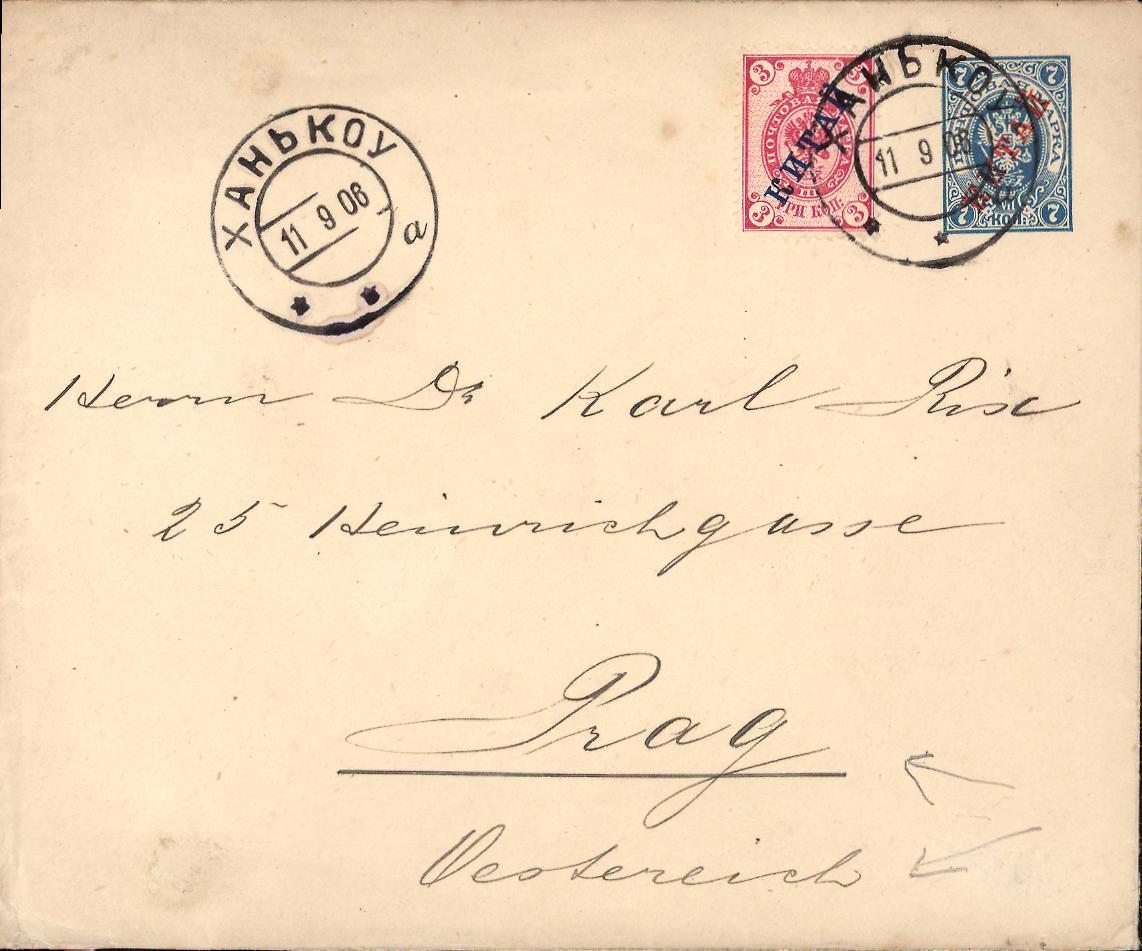 ХАНЬКОУ
11 9 06
а
3
3
3
ПОЧТОВАЯ
ТРИ КОП.
КИТАЙ
7
7
7
7
МАРКА
КОП.
КИТАЙ
ХАНЬКОУ
11 9 06
Herrn Dr Karl Rix
25 Heinrichgasse
Prag
Oestereich